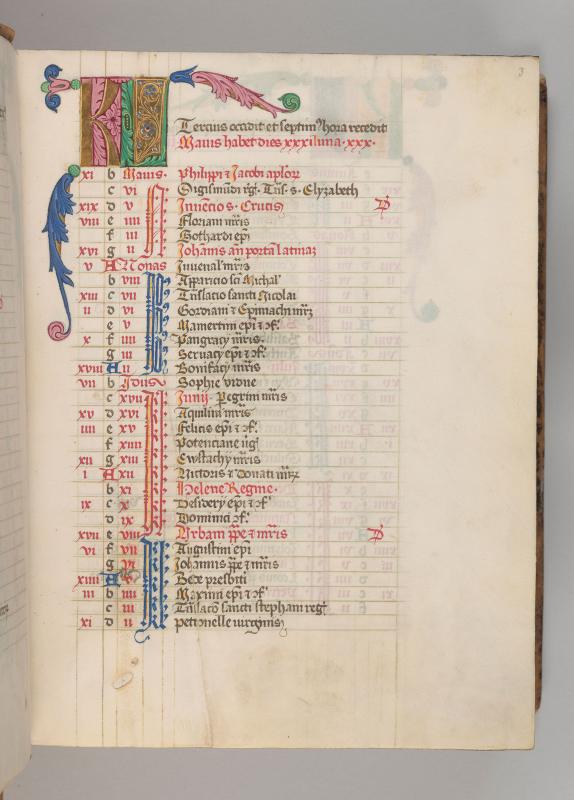 3
KL Tercius occidit et septim⁹ hora recedit
Maius habet dies xxxi luna xxx.
xi b Maius. Philippi ⁊ Jacobi aplor
c vi Sigismūdi rg̃. Trās. s. Elyzabeth
xix d v Juuēcio s. Crucis D
viii e iiii Floriani mr̃is
f iii Gothardi ep̃i
xvi g ii Johānis añ portā latinaȝ
v A Nonas Juuenal mr̃is
b viii Apparicio sc̃i Michal'
xiii c vii Trãslacio sancti Nicolai
ii d vi Gordiani ⁊ Epimachi mr̃ȝ
e v Mamertini ep̃i ⁊ ɔf.
x f iiii Pangracy mr̃is.
g iii Seruacy ep̃i ⁊ ɔf.
xviii A ii Bonifacy mr̃is
vii b Jdus Sophie vidue
c xvii Junij. Peregrini mr̃is
xv d xvi Aquilini mr̃is
iiii e xv Felicis ep̃i ⁊ ɔf.
f xiiii Potenciane v̄g̃
xii g xiii Eustachy mr̃is
i A xii Victoris ⁊ Donati mr̃ȝ
b xi Helene Regine.
ix c x Desidery ep̃i ⁊ ɔf
d ix Dominici ɔf.
xvii e viii Vrbani pp̃e ⁊ mr̃is D
vi f vii Augustini ep̃i
g vi Johannis pp̃e ⁊ mr̃is
xiiii A v Bede presbiti
iii b iiii Maximi ep̃i ⁊ ɔf
c iii Trãslacō sancti stephani reg̃
xi d ii Petronelle virginis